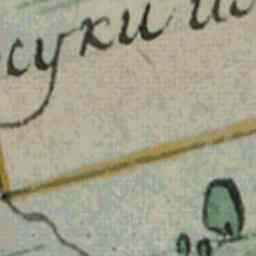 суки ш